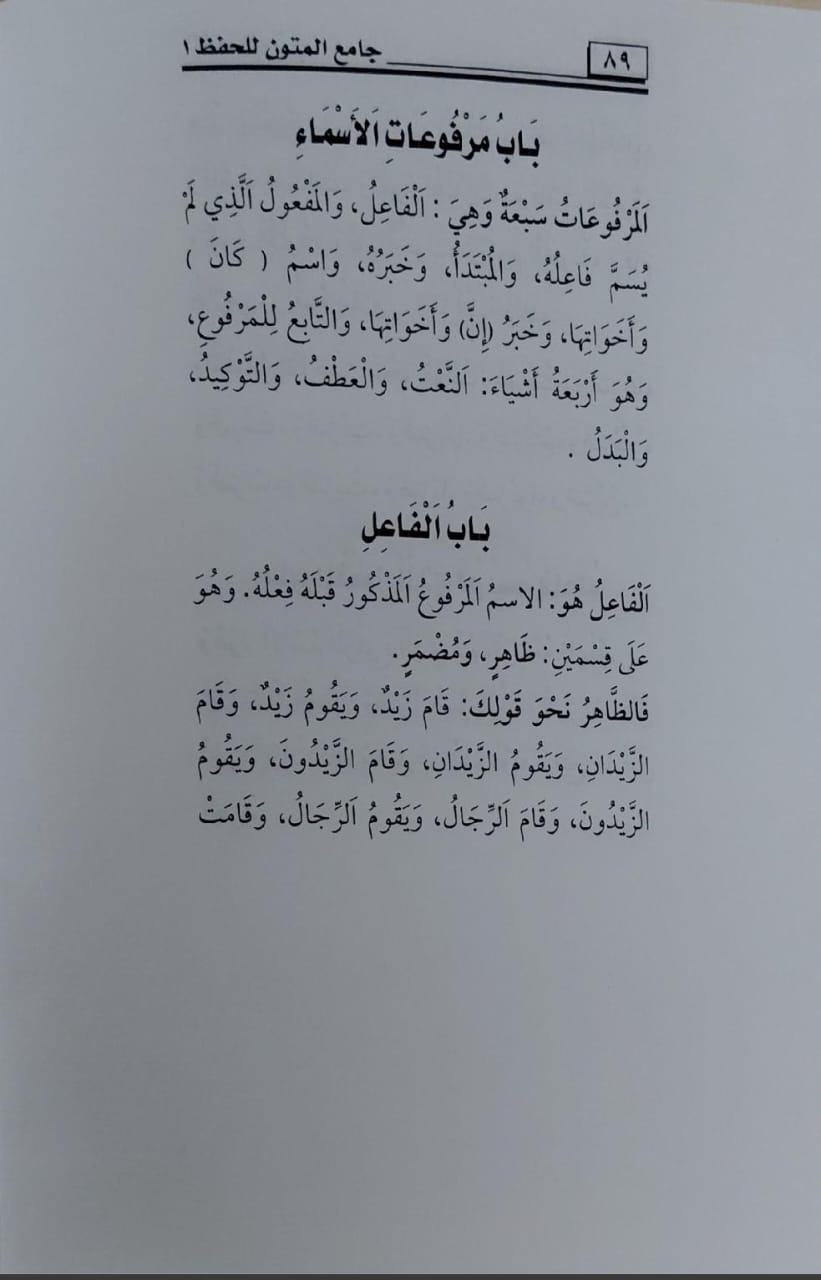 ٨٩ جامع المتون للحفظ ١
بَابُ مَرْفُوعَاتِ اَلأَسْمَاءِ
اَلمَرْفُوعَاتُ سَبْعَةٌ وَهِيَ : اَلْفَاعِلُ، وَالمَفْعُولُ اَلَّذِي لَمْ
يُسَمَّ فَاعِلُهُ، وَالمُبْتَدَأُ، وَخَبَرُهُ، وَاسْمُ ( كَانَ )
وَأَخَوَاتِهَا، وَخَبَرُ (إِنَّ) وَأَخَوَاتِهَا، وَالتَّابِعُ لِلْمَرْفُوعِ،
وَهُوَ أَرْبَعَةُ أَشْيَاءَ: اَلنَّعْتُ، وَالْعَطْفُ، وَالتَّوْكِيدُ،
وَالْبَدَلُ .
بَابُ اَلْفَاعِلِ
اَلْفَاعِلُ هُوَ: الاسمُ اَلمَرْفُوعُ اَلمَذْكُورُ قَبْلَهُ فِعْلُهُ. وَهُوَ
عَلَى قِسْمَيْنِ: ظَاهِرٍ، وَمُضْمَرٍ.
فَالظَّاهِرُ نَحْوَ قَوْلِكَ: قَامَ زَيْدٌ، وَيَقُومُ زَيْدٌ، وَقَامَ
الزَّيْدَانِ، وَيَقُومُ الزَّيْدَانِ، وَقَامَ الزَّيْدُونَ، وَيَقُومُ
الزَّيْدُونَ، وَقَامَ اَلرِّجَالُ، وَيَقُومُ اَلرِّجَالُ، وَقَامَتْ